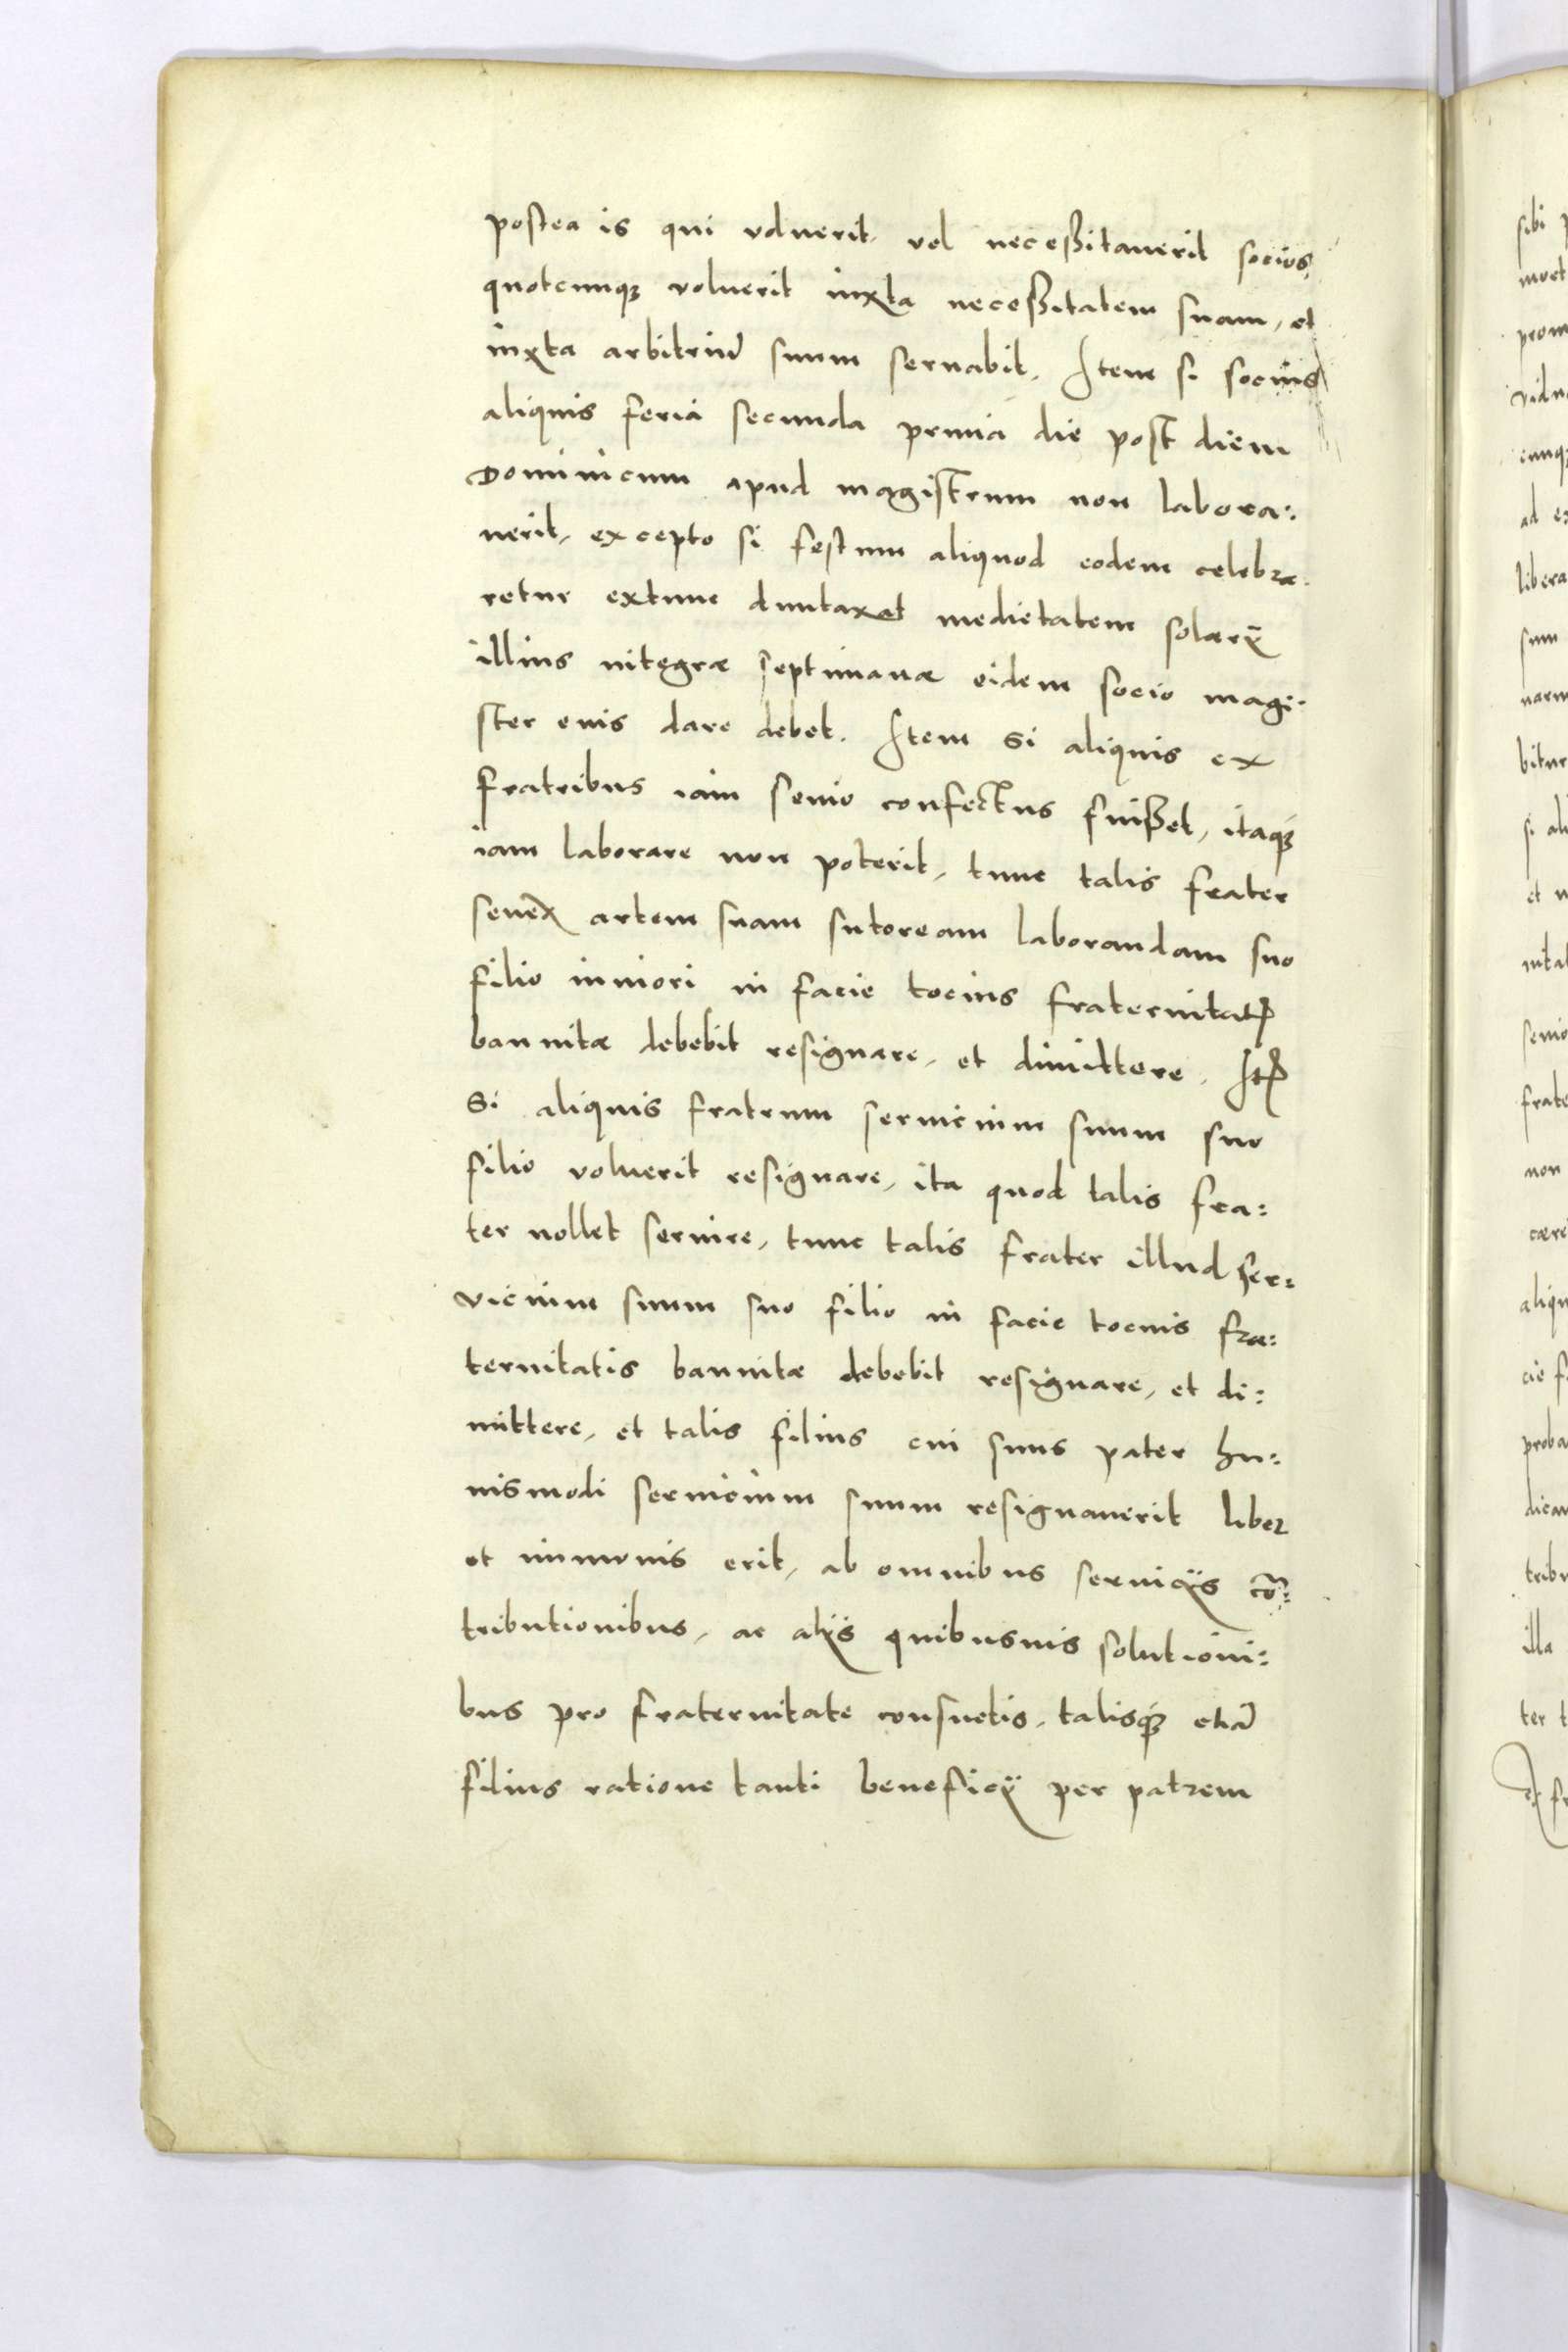 postea is qui voluerit, vel neceßitauerit socios
quotcunqꝫ voluerit iuxta neceßitatem suam, et
iuxta arbitriũ suum seruabit, Item si socius
aliquis feria secunda prima die post diem
Dominicum apud magistrum non labora:
uerit, excepto si festum aliquod eodem celebra-
retur extunc duntaxat medietatem solarÿ
illius integræ septimanæ eidem socio magi-
ster euis dare debet. Item Si aliquis ex
fratribus iam senio confectus fuißet, itaqꝫ
iam laborare non poterit, tunc talis frater
senex artem suam sutoream laborandam suo
filio iuniori in facie tocius fraternitatꝭ
bannitæ debebit resignare, et dimittere, Itꝭ
Si aliquis fratrum seruicium suum suo
filio voluerit resignare, ita quod talis fra:
ter nollet seruire, tunc talis frater illud ser:
vicium suum suo filio in facie tocius fra:
ternitatis bannitæ debebit resignare, et di:
mittere, et talis filius cui suus pater hu:
iusmodi seruicium suum resignauerit liber
et immunis erit, ab omnibus seruicÿs cõ:
tributionibus, ac alÿs quibusuis solutioni:
bus pro fraternitate consuetis, talisqꝫ etiã
filius ratione tanti beneficÿ per patrem
sibi
prom
ad
libera
sum
bitur
si
et
senio
frate
non
cie
proba
illa
ter